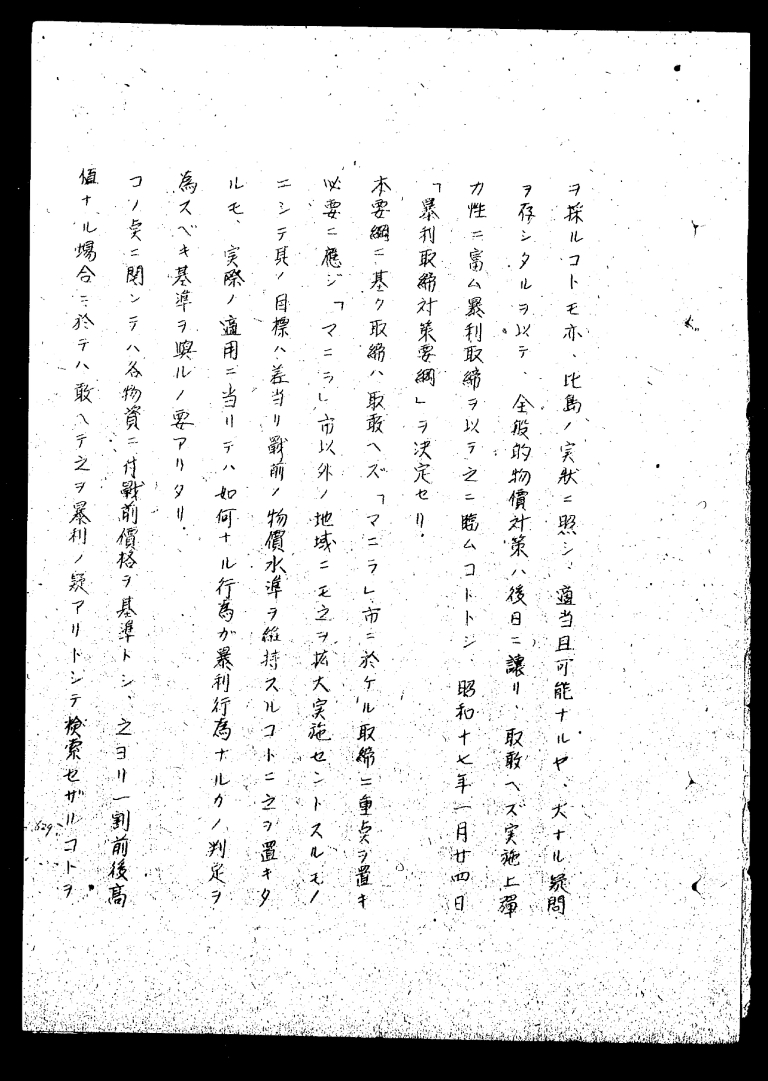 ヲ採ルコトモ亦、比島ノ実状ニ照シ、適当且可能ナルヤ、大ナル疑問
ヲ存シタルヲ以テ、全般的物價対策ハ後日ニ譲リ、取敢ヘズ実施上彈
力性ニ富ム暴利取締ヲ以テ之ニ臨ムコトトシ、昭和十七年一月廿四日
「暴利取締対策要綱」ヲ決定セリ。
本要綱ニ基ク取締ハ取敢ヘズ「マニラ」市ニ於ケル取締ニ重点ヲ置キ
必要ニ應ジ「マニラ」市以外ノ地域ニモ之ヲ拡大実施セントスルモノ
ニシテ其ノ目標ハ差当リ戰前ノ物價水準ヲ維持スルコトニ之ヲ置キタ
ルモ、実際ノ適用ニ当リテハ如何ナル行為ガ暴利行為ナルカノ判定ヲ
為スベキ基準ヲ與ルノ要アリタリ。
コノ点ニ関シテハ各物資ニ付戰前價格ヲ基準トシ、之ヨリ一割前後高
値ナル場合ニ於テハ敢ヘテ之ヲ暴利ノ疑アリトシテ検索セザルコトヲ
629